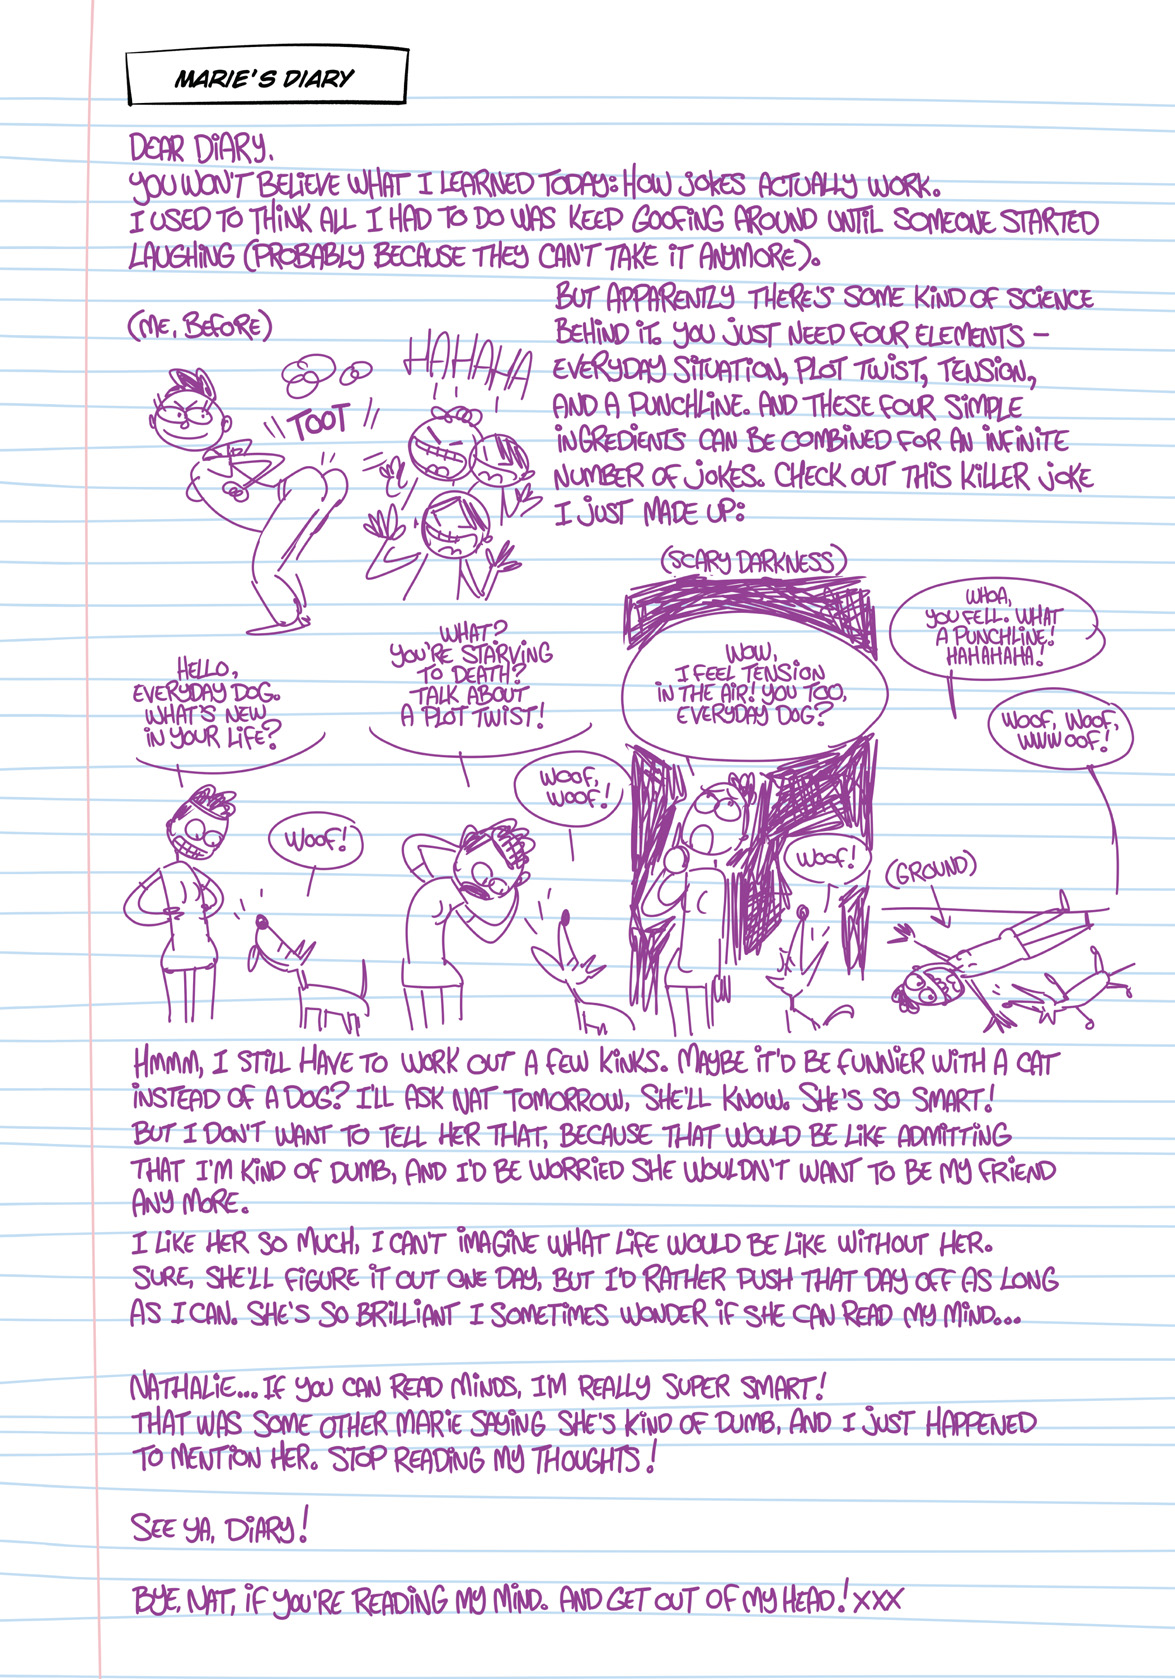 MARIE'S DIARY
DEAR DIARY.
YOU WON'T BELIEVE WHAT I LEARNED TODAY: HOW JOKES ACTUALLY WORK.
I USED TO THINK ALL I HAD TO DO WAS KEEP GOOFING AROUND UNTIL SOMEONE STARTED
LAUGHING (PROBABLY BECAUSE THEY CAN'T TAKE IT ANYMORE).
BUT APPARENTLY THERE'S SOME KIND OF SCIENCE
BEHIND IT. YOU JUST NEED FOUR ELEMENTS –
EVERYDAY SITUATION, PLOT TWIST, TENSION,
AND A PUNCHLINE. AND THESE FOUR SIMPLE
INGREDIENTS CAN BE COMBINED FOR AN INFINITE
NUMBER OF JOKES. CHECK OUT THIS KILLER JOKE
I JUST MADE UP:
(ME, BEFORE)
TOOT
HAHAHA
HELLO,
EVERYDAY DOG.
WHAT'S NEW
IN YOUR LIFE?
WOOF!
WHAT?
YOU'RE STARVING
TO DEATH?
TALK ABOUT
A PLOT TWIST!
WOOF,
WOOF!
(SCARY DARKNESS)
WOW,
I FEEL TENSION
IN THE AIR! YOU TOO,
EVERYDAY DOG?
WOOF!
WHOA,
YOU FELL. WHAT
A PUNCHLINE!
HAHAHAHA!
WOOF, WOOF,
WWWOOF!
(GROUND)
HMMM, I STILL HAVE TO WORK OUT A FEW KINKS. MAYBE IT'D BE FUNNIER WITH A CAT
INSTEAD OF A DOG? I'LL ASK NAT TOMORROW, SHE'LL KNOW. SHE'S SO SMART!
BUT I DON'T WANT TO TELL HER THAT, BECAUSE THAT WOULD BE LIKE ADMITTING
THAT I'M KIND OF DUMB, AND I'D BE WORRIED SHE WOULDN'T WANT TO BE MY FRIEND
ANY MORE.
I LIKE HER SO MUCH, I CAN'T IMAGINE WHAT LIFE WOULD BE LIKE WITHOUT HER.
SURE, SHE'LL FIGURE IT OUT ONE DAY, BUT I'D RATHER PUSH THAT DAY OFF AS LONG
AS I CAN. SHE'S SO BRILLIANT I SOMETIMES WONDER IF SHE CAN READ MY MIND...
NATHALIE... IF YOU CAN READ MINDS, I'M REALLY SUPER SMART!
THAT WAS SOME OTHER MARIE SAYING SHE'S KIND OF DUMB, AND I JUST HAPPENED
TO MENTION HER. STOP READING MY THOUGHTS!
SEE YA, DIARY!
BYE, NAT, IF YOU'RE READING MY MIND. AND GET OUT OF MY HEAD! XXX